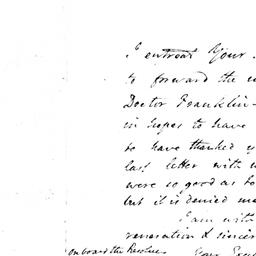 I entreat Your
to forward the
Doctor Franklin-
in hopes to have
to have thanked
last letter with
were so good as to
but it is denied me
I am with
veneration & sincer
on board the
Your